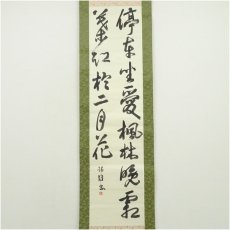 停車坐愛楓林晩霜
葉紅於二月花